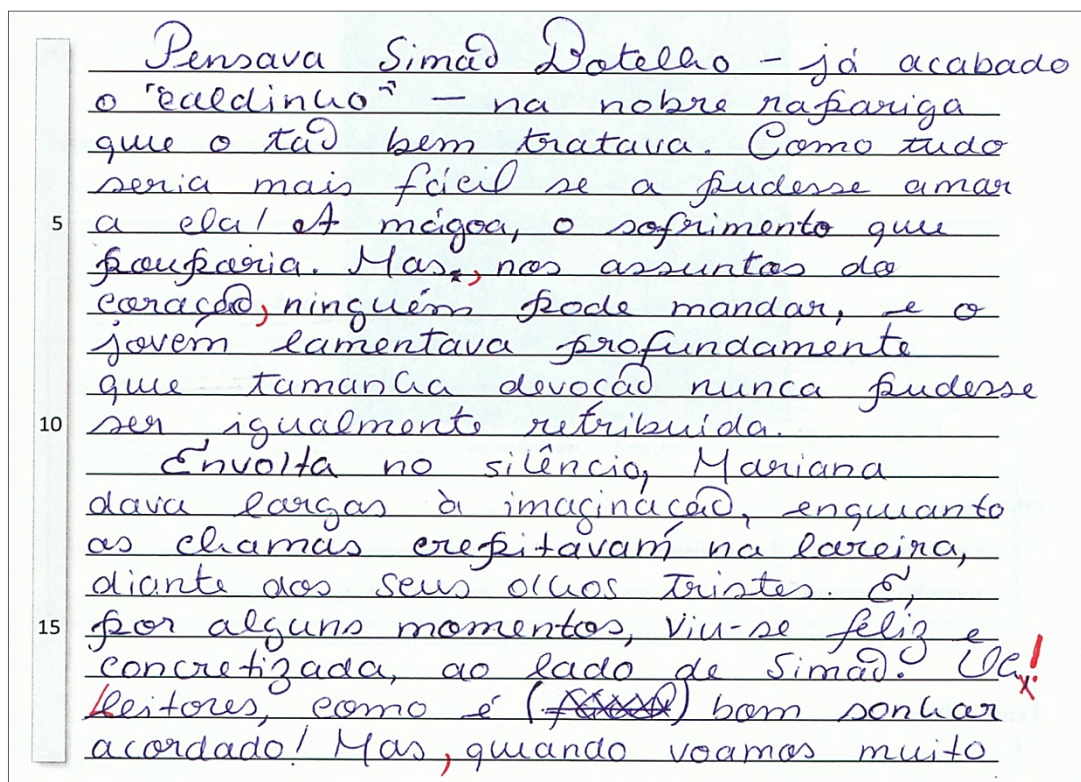 Pensava Simão Botelho – já acabado
o "caldinho" – na nobre rapariga
que o tão bem tratava. Como tudo
seria mais fácil se a pudesse amar
5 a ela! A mágoa, o sofrimento que
pouparia. Mas, nos assuntos do
coração, ninguém pode mandar, e o
jovem lamentava profundamente
que tamanha devoção nunca pudesse
10 ser igualmente retribuída.
Envolta no silêncio, Mariana
dava largas à imaginação, enquanto
as chamas crepitavam na lareira,
diante dos seus olhos tristes. E,
15 por alguns momentos, viu-se feliz e
concretizada, ao lado de Simão. Oh!
Leitores, como é bom sonhar
acordado! Mas, quando voamos muito